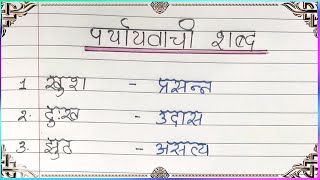 पर्यायवाची शब्द
1. खुश - प्रसन्न
2. दुःख - उदास
3. झुठ - असत्य